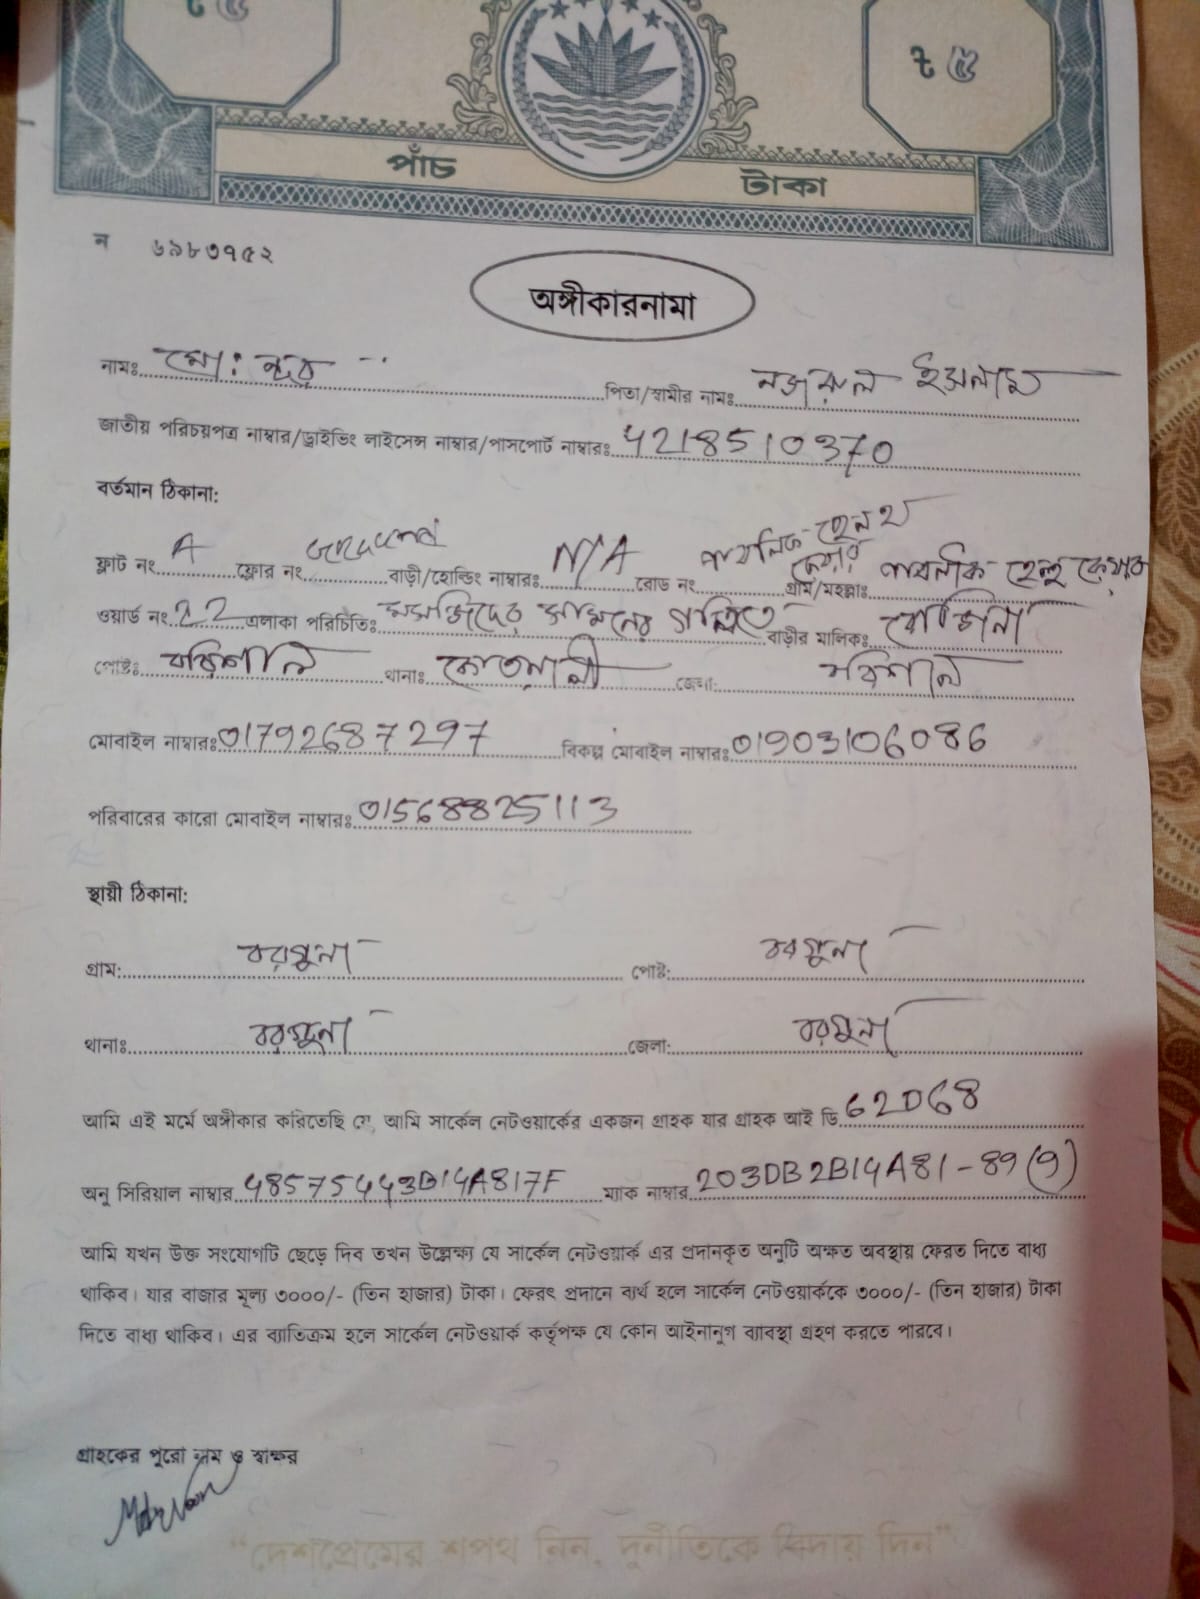 ৳ ৫ ৳ ৫
পাঁচ টাকা
ন ৬৯৮৩৭৫২
অঙ্গীকারনামা
নামঃ মো: নুর পিতা/স্বামীর নামঃ নজরুল ইসলাম
জাতীয় পরিচয়পত্র নাম্বার/ড্রাইভিং লাইসেন্স নাম্বার/পাসপোর্ট নাম্বারঃ 4218510370
বর্তমান ঠিকানা:
ফ্লাট নং A ফ্লোর নং বাড়ী/হোল্ডিং নাম্বারঃ N/A রোড নং পাবলিক হেলথ কেয়ার গ্রাম/মহল্লাঃ পাবলিক হেলথ কেয়ার
ওয়ার্ড নং 22 এলাকা পরিচিতিঃ মসজিদের সামনের গলিতে বাড়ীর মালিকঃ রোজিনা
পোষ্টঃ বরিশাল থানাঃ কোতয়ালী জেলা: বরিশাল
মোবাইল নাম্বারঃ 01792687297 বিকল্প মোবাইল নাম্বারঃ 01903106086
পরিবারের কারো মোবাইল নাম্বারঃ 01568825113
স্থায়ী ঠিকানা:
গ্রাম: বরগুনা পোষ্ট: বরগুনা
থানাঃ বরগুনা জেলা: বরগুনা
আমি এই মর্মে অঙ্গীকার করিতেছি যে, আমি সার্কেল নেটওয়ার্কের একজন গ্রাহক যার গ্রাহক আই ডি 62068
অনু সিরিয়াল নাম্বার 48575443B14A817F ম্যাক নাম্বার 203DB2B14A81-89(9)
আমি যখন উক্ত সংযোগটি ছেড়ে দিব তখন উল্লেক্ষ্য যে সার্কেল নেটওয়ার্ক এর প্রদানকৃত অনুটি অক্ষত অবস্থায় ফেরত দিতে বাধ্য
থাকিব। যার বাজার মূল্য ৩০০০/- (তিন হাজার) টাকা। ফেরৎ প্রদানে ব্যর্থ হলে সার্কেল নেটওয়ার্ককে ৩০০০/- (তিন হাজার) টাকা
দিতে বাধ্য থাকিব। এর ব্যাতিক্রম হলে সার্কেল নেটওয়ার্ক কর্তৃপক্ষ যে কোন আইনানুগ ব্যাবস্থা গ্রহণ করতে পারবে।
গ্রাহকের পুরো নাম ও স্বাক্ষর
“দেশপ্রেমের শপথ নিন, দুর্নীতিকে বিদায় দিন”